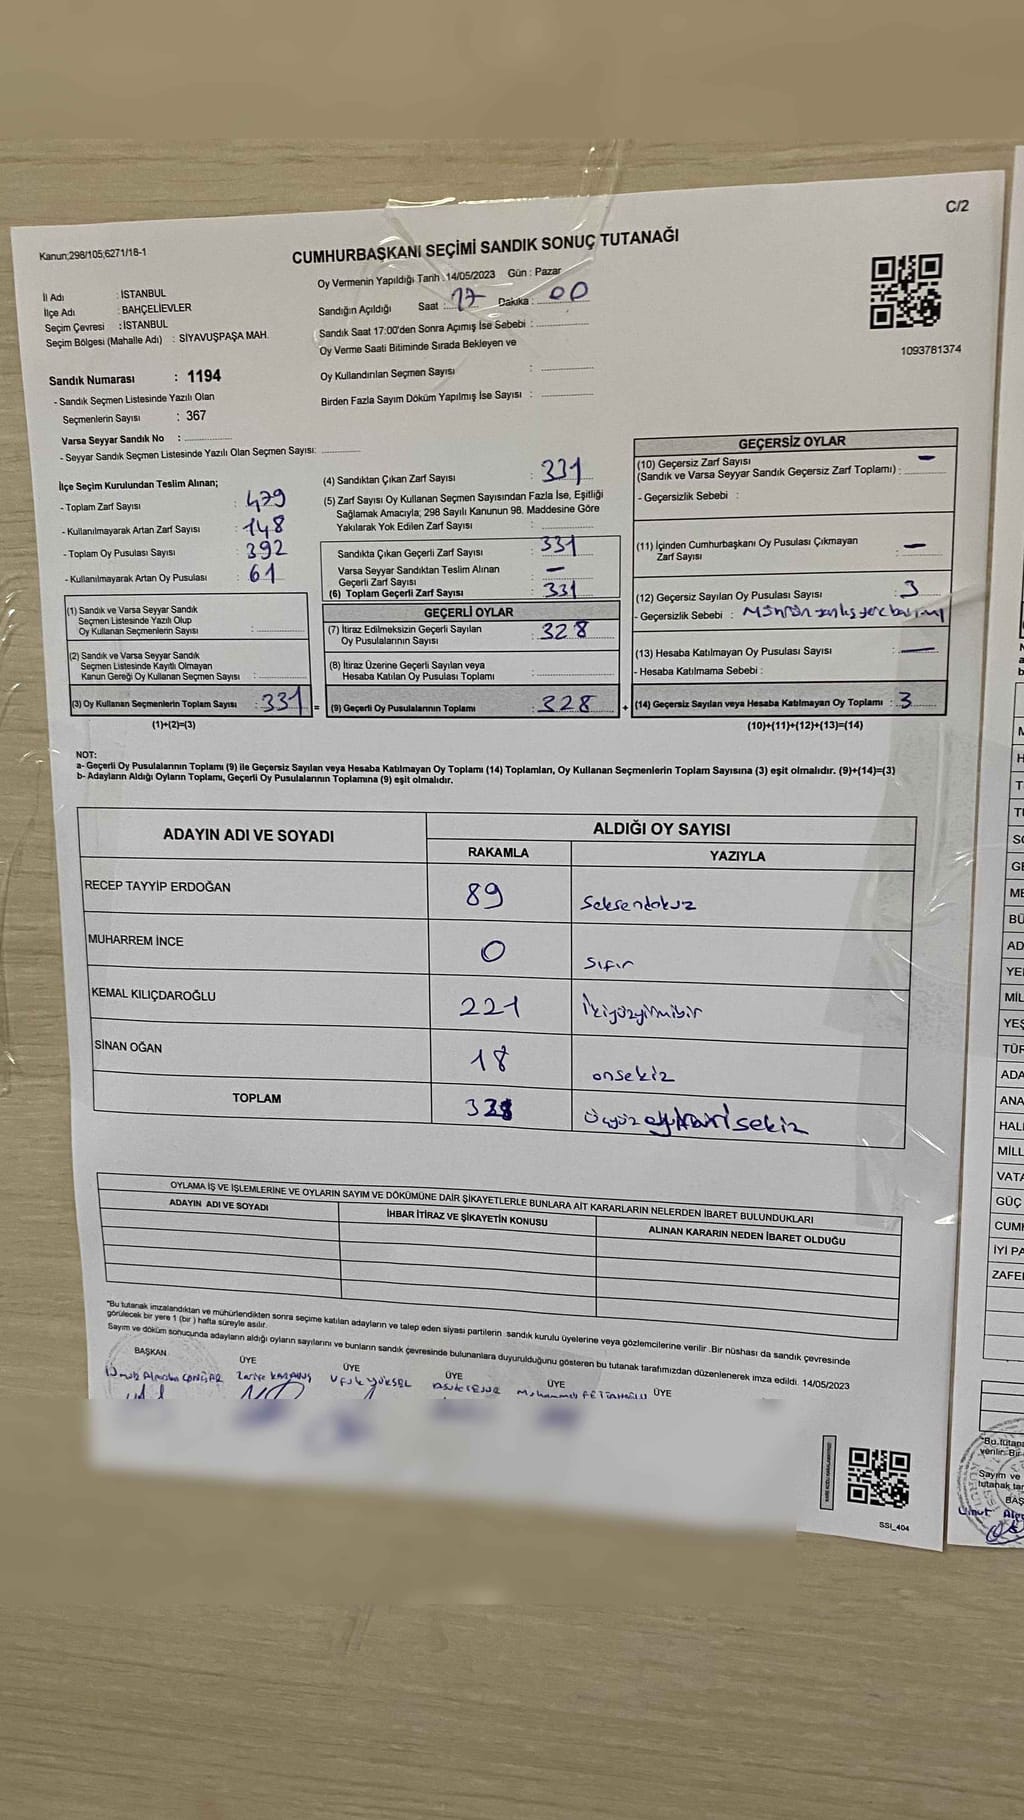 C/2
Kanun;298/105;6271/18-1
CUMHURBAŞKANI SEÇİMİ SANDIK SONUÇ TUTANAĞI
Oy Vermenin Yapıldığı Tarih : 14/05/2023 Gün : Pazar
İl Adı : İSTANBUL
İlçe Adı : BAHÇELİEVLER
Seçim Çevresi : İSTANBUL
Seçim Bölgesi (Mahalle Adı) : SİYAVUŞPAŞA MAH.
Sandığın Açıldığı Saat : 17 Dakika : 00
Sandık Saat 17:00'den Sonra Açımış İse Sebebi :
Oy Verme Saati Bitiminde Sırada Bekleyen ve
Oy Kullandırılan Seçmen Sayısı :
Birden Fazla Sayım Döküm Yapılmış İse Sayısı :
1093781374
Sandık Numarası : 1194
- Sandık Seçmen Listesinde Yazılı Olan
Seçmenlerin Sayısı : 367
Varsa Seyyar Sandık No :
- Seyyar Sandık Seçmen Listesinde Yazılı Olan Seçmen Sayısı:
İlçe Seçim Kurulundan Teslim Alınan;
- Toplam Zarf Sayısı : 479
- Kullanılmayarak Artan Zarf Sayısı : 148
- Toplam Oy Pusulası Sayısı : 392
- Kullanılmayarak Artan Oy Pusulası : 61
(1) Sandık ve Varsa Seyyar Sandık
Seçmen Listesinde Yazılı Olup
Oy Kullanan Seçmenlerin Sayısı :
(2) Sandık ve Varsa Seyyar Sandık
Seçmen Listesinde Kayıtlı Olmayan
Kanun Gereği Oy Kullanan Seçmen Sayısı :
(3) Oy Kullanan Seçmenlerin Toplam Sayısı : 331 =
(1)+(2)=(3)
(4) Sandıktan Çıkan Zarf Sayısı : 331
(5) Zarf Sayısı Oy Kullanan Seçmen Sayısından Fazla İse, Eşitliği
Sağlamak Amacıyla; 298 Sayılı Kanunun 98. Maddesine Göre
Yakılarak Yok Edilen Zarf Sayısı :
Sandıkta Çıkan Geçerli Zarf Sayısı : 331
Varsa Seyyar Sandıktan Teslim Alınan
Geçerli Zarf Sayısı : —
(6) Toplam Geçerli Zarf Sayısı : 331
GEÇERLİ OYLAR
(7) İtiraz Edilmeksizin Geçerli Sayılan
Oy Pusulalarının Sayısı : 328
(8) İtiraz Üzerine Geçerli Sayılan veya
Hesaba Katılan Oy Pusulası Toplamı :
(9) Geçerli Oy Pusulalarının Toplamı : 328 +
GEÇERSİZ OYLAR
(10) Geçersiz Zarf Sayısı
(Sandık ve Varsa Seyyar Sandık Geçersiz Zarf Toplamı) : —
- Geçersizlik Sebebi :
(11) İçinden Cumhurbaşkanı Oy Pusulası Çıkmayan
Zarf Sayısı : —
(12) Geçersiz Sayılan Oy Pusulası Sayısı : 3
- Geçersizlik Sebebi : Mührün yanlış yere
(13) Hesaba Katılmayan Oy Pusulası Sayısı : —
- Hesaba Katılmama Sebebi :
(14) Geçersiz Sayılan veya Hesaba Katılmayan Oy Toplamı : 3
(10)+(11)+(12)+(13)=(14)
NOT:
a- Geçerli Oy Pusulalarının Toplamı (9) ile Geçersiz Sayılan veya Hesaba Katılmayan Oy Toplamı (14) Toplamları, Oy Kullanan Seçmenlerin Toplam Sayısına (3) eşit olmalıdır. (9)+(14)=(3)
b- Adayların Aldığı Oyların Toplamı, Geçerli Oy Pusulalarının Toplamına (9) eşit olmalıdır.
ADAYIN ADI VE SOYADI ALDIĞI OY SAYISI
RAKAMLA YAZIYLA
RECEP TAYYİP ERDOĞAN 89 Seksendokuz
MUHARREM İNCE 0 Sıfır
KEMAL KILIÇDAROĞLU 221 İkiyüzyirmibir
SİNAN OĞAN 18 onsekiz
TOPLAM 328 sekiz
OYLAMA İŞ VE İŞLEMLERİNE VE OYLARIN SAYIM VE DÖKÜMÜNE DAİR ŞİKAYETLERLE BUNLARA AİT KARARLARIN NELERDEN İBARET BULUNDUKLARI
ADAYIN ADI VE SOYADI İHBAR İTİRAZ VE ŞİKAYETİN KONUSU ALINAN KARARIN NEDEN İBARET OLDUĞU
*Bu tutanak imzalandıktan ve mühürlendikten sonra seçime katılan adayların ve talep eden siyasi partilerin sandık kurulu üyelerine veya gözlemcilerine verilir .Bir nüshası da sandık çevresinde
görülecek bir yere 1 (bir ) hafta süreyle asılır.
Sayım ve döküm sonucunda adayların aldığı oyların sayılarını ve bunların sandık çevresinde bulunanlara duyurulduğunu gösteren bu tutanak tarafımızdan düzenlenerek imza edildi. 14/05/2023
BAŞKAN ÜYE ÜYE ÜYE ÜYE ÜYE
Ufuk YÜKSEL
SSİ_404